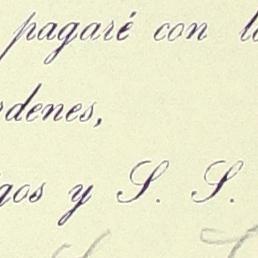 pagaré con
rdenes,
gos y S. S.